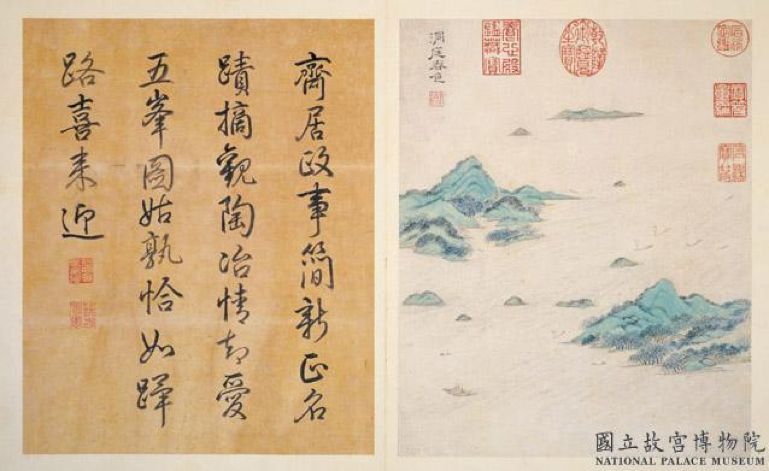 洞庭春色
齋居政事簡新正名
蹟摘觀陶冶情却愛
五峯圖姑孰恰如蹕
路喜来迎
國立故宮博物院
NATIONAL PALACE MUSEUM